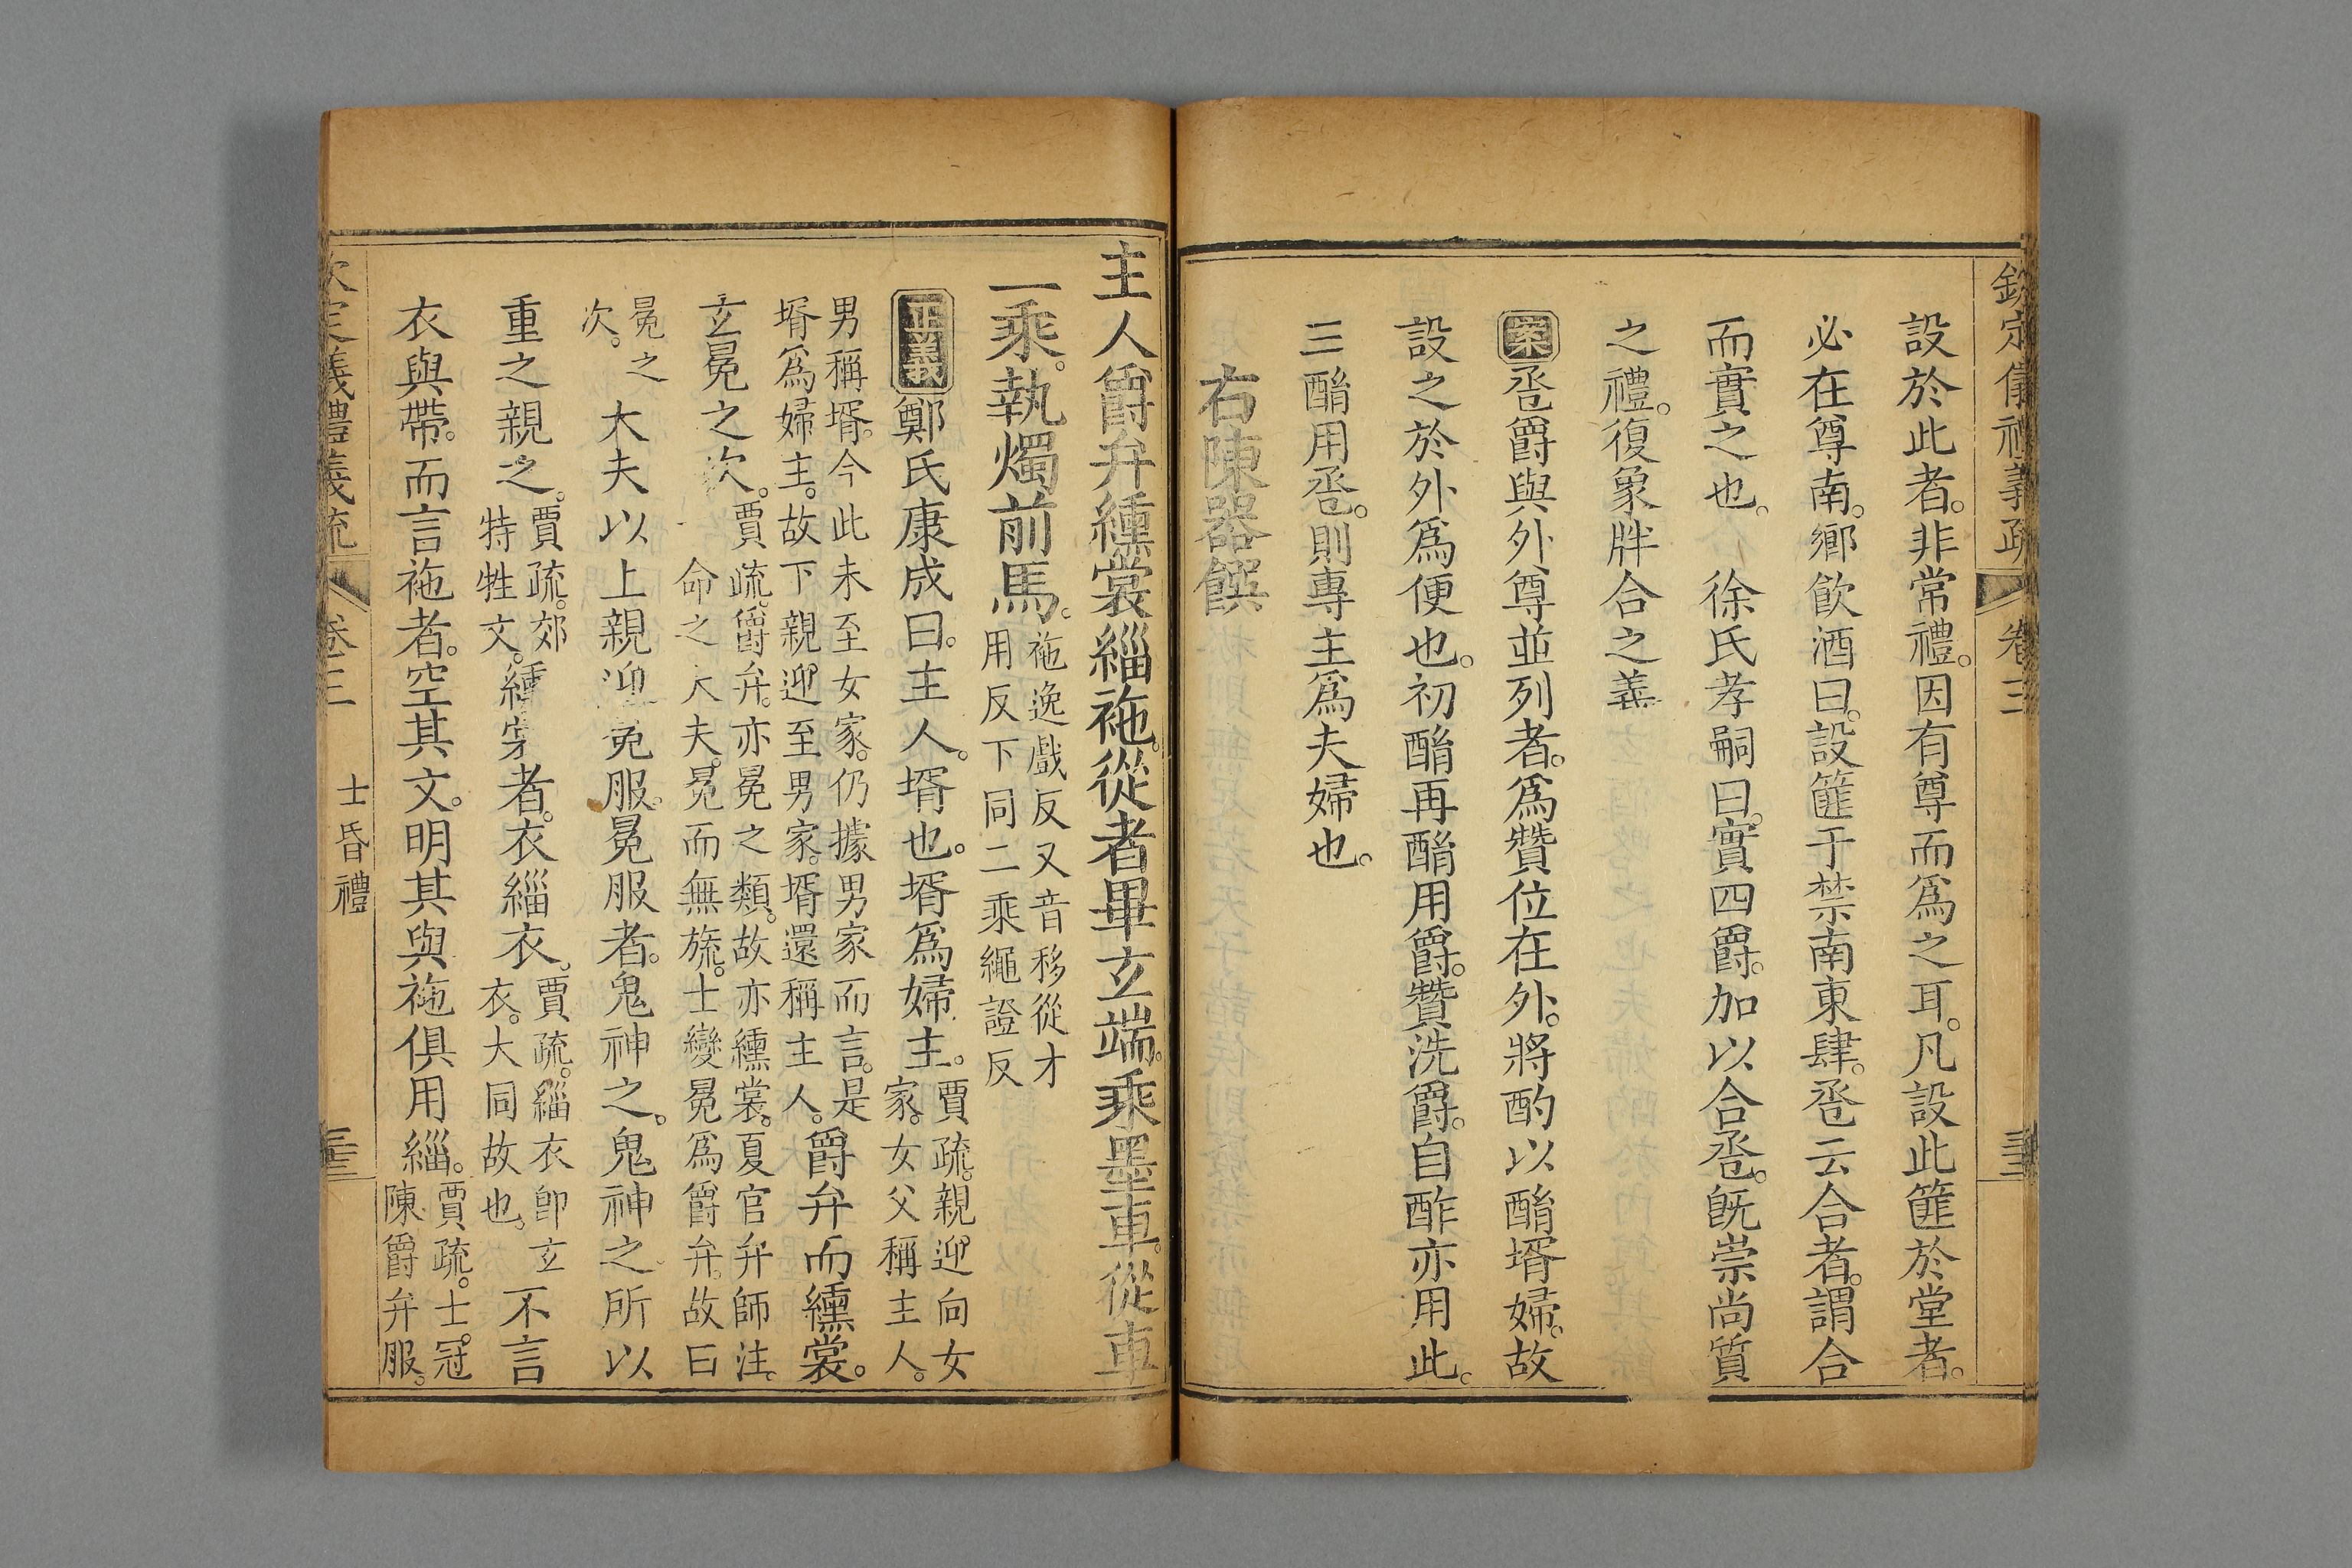 欽定儀禮義疏 卷三
設於此者。非常禮。因有尊而爲之耳。凡設此篚於堂者。
必在尊南。鄉飲酒曰。設篚于禁南東肆。卺云合者。謂合
而實之也。 徐氏孝嗣曰。實四爵。加以合卺。旣崇尚質
之禮。復象牉合之義
案卺爵與外尊並列者。爲贊位在外。將酌以酳壻婦。故
設之於外爲便也。初酳再酳用爵。贊洗爵。自酢亦用此。
三酳用卺。則專主爲夫婦也。
右陳器饌
主人爵弁纁裳緇袘。從者畢玄端。乘墨車。從車
二乘。執燭前馬。袘逸戲反又音移從才
用反下同二乘繩證反
正義鄭氏康成曰。主人。壻也。壻爲婦主。賈疏。親迎向女
家。女父稱主人。
男稱壻。今此未至女家。仍據男家而言。是
壻爲婦主。故下親迎至男家。壻還稱主人。爵弁而纁裳。
玄冕之次。賈疏。爵弁。亦冕之類。故亦纁裳。夏官弁師注。
命之大夫。冕而無旒。士變冕爲爵弁。故曰
冕之
次。 大夫以上親迎冕服。冕服者。鬼神之。鬼神之所以
重之親之。賈疏。郊
特牲文。纁裳者。衣緇衣。賈疏。緇衣卽玄
衣。大同故也。不言
衣與帶。而言袘者。空其文。明其與袘俱用緇。賈疏。士冠
陳爵弁服。
欽定儀禮義疏 卷三 士昏禮